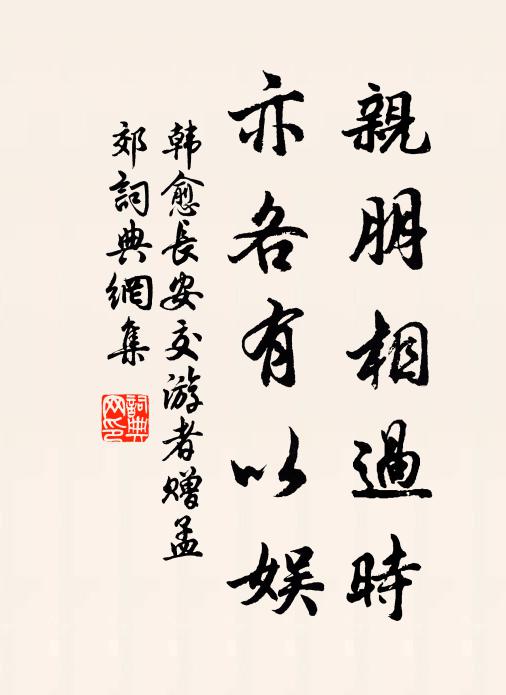 親朋相過時
亦各有以娱
韩愈長安交游者赠孟
郊詞典網集
詞典网印